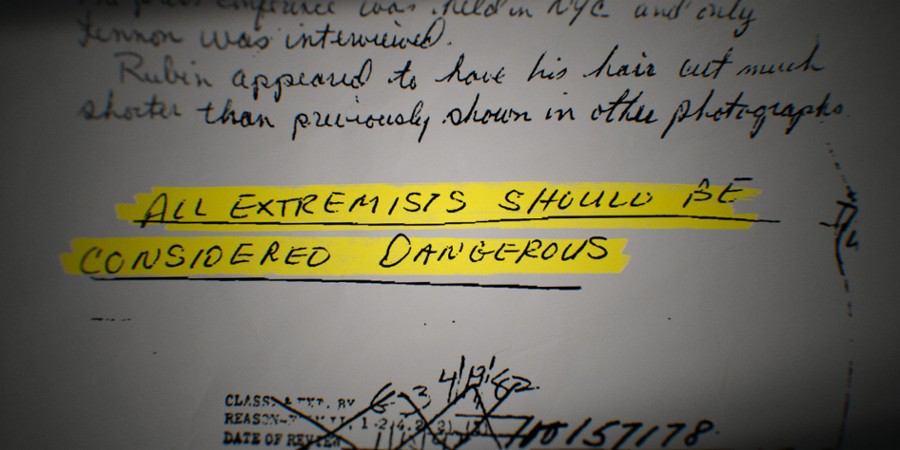 press conference was held in NYC and only
Lennon was interviewed.
Rubin appeared to have his hair cut much
shorter than previously shown in other photographs.
ALL EXTREMISTS SHOULD BE
CONSIDERED DANGEROUS
CLASS. & EXT. BY
REASON-
DATE OF REVIEW